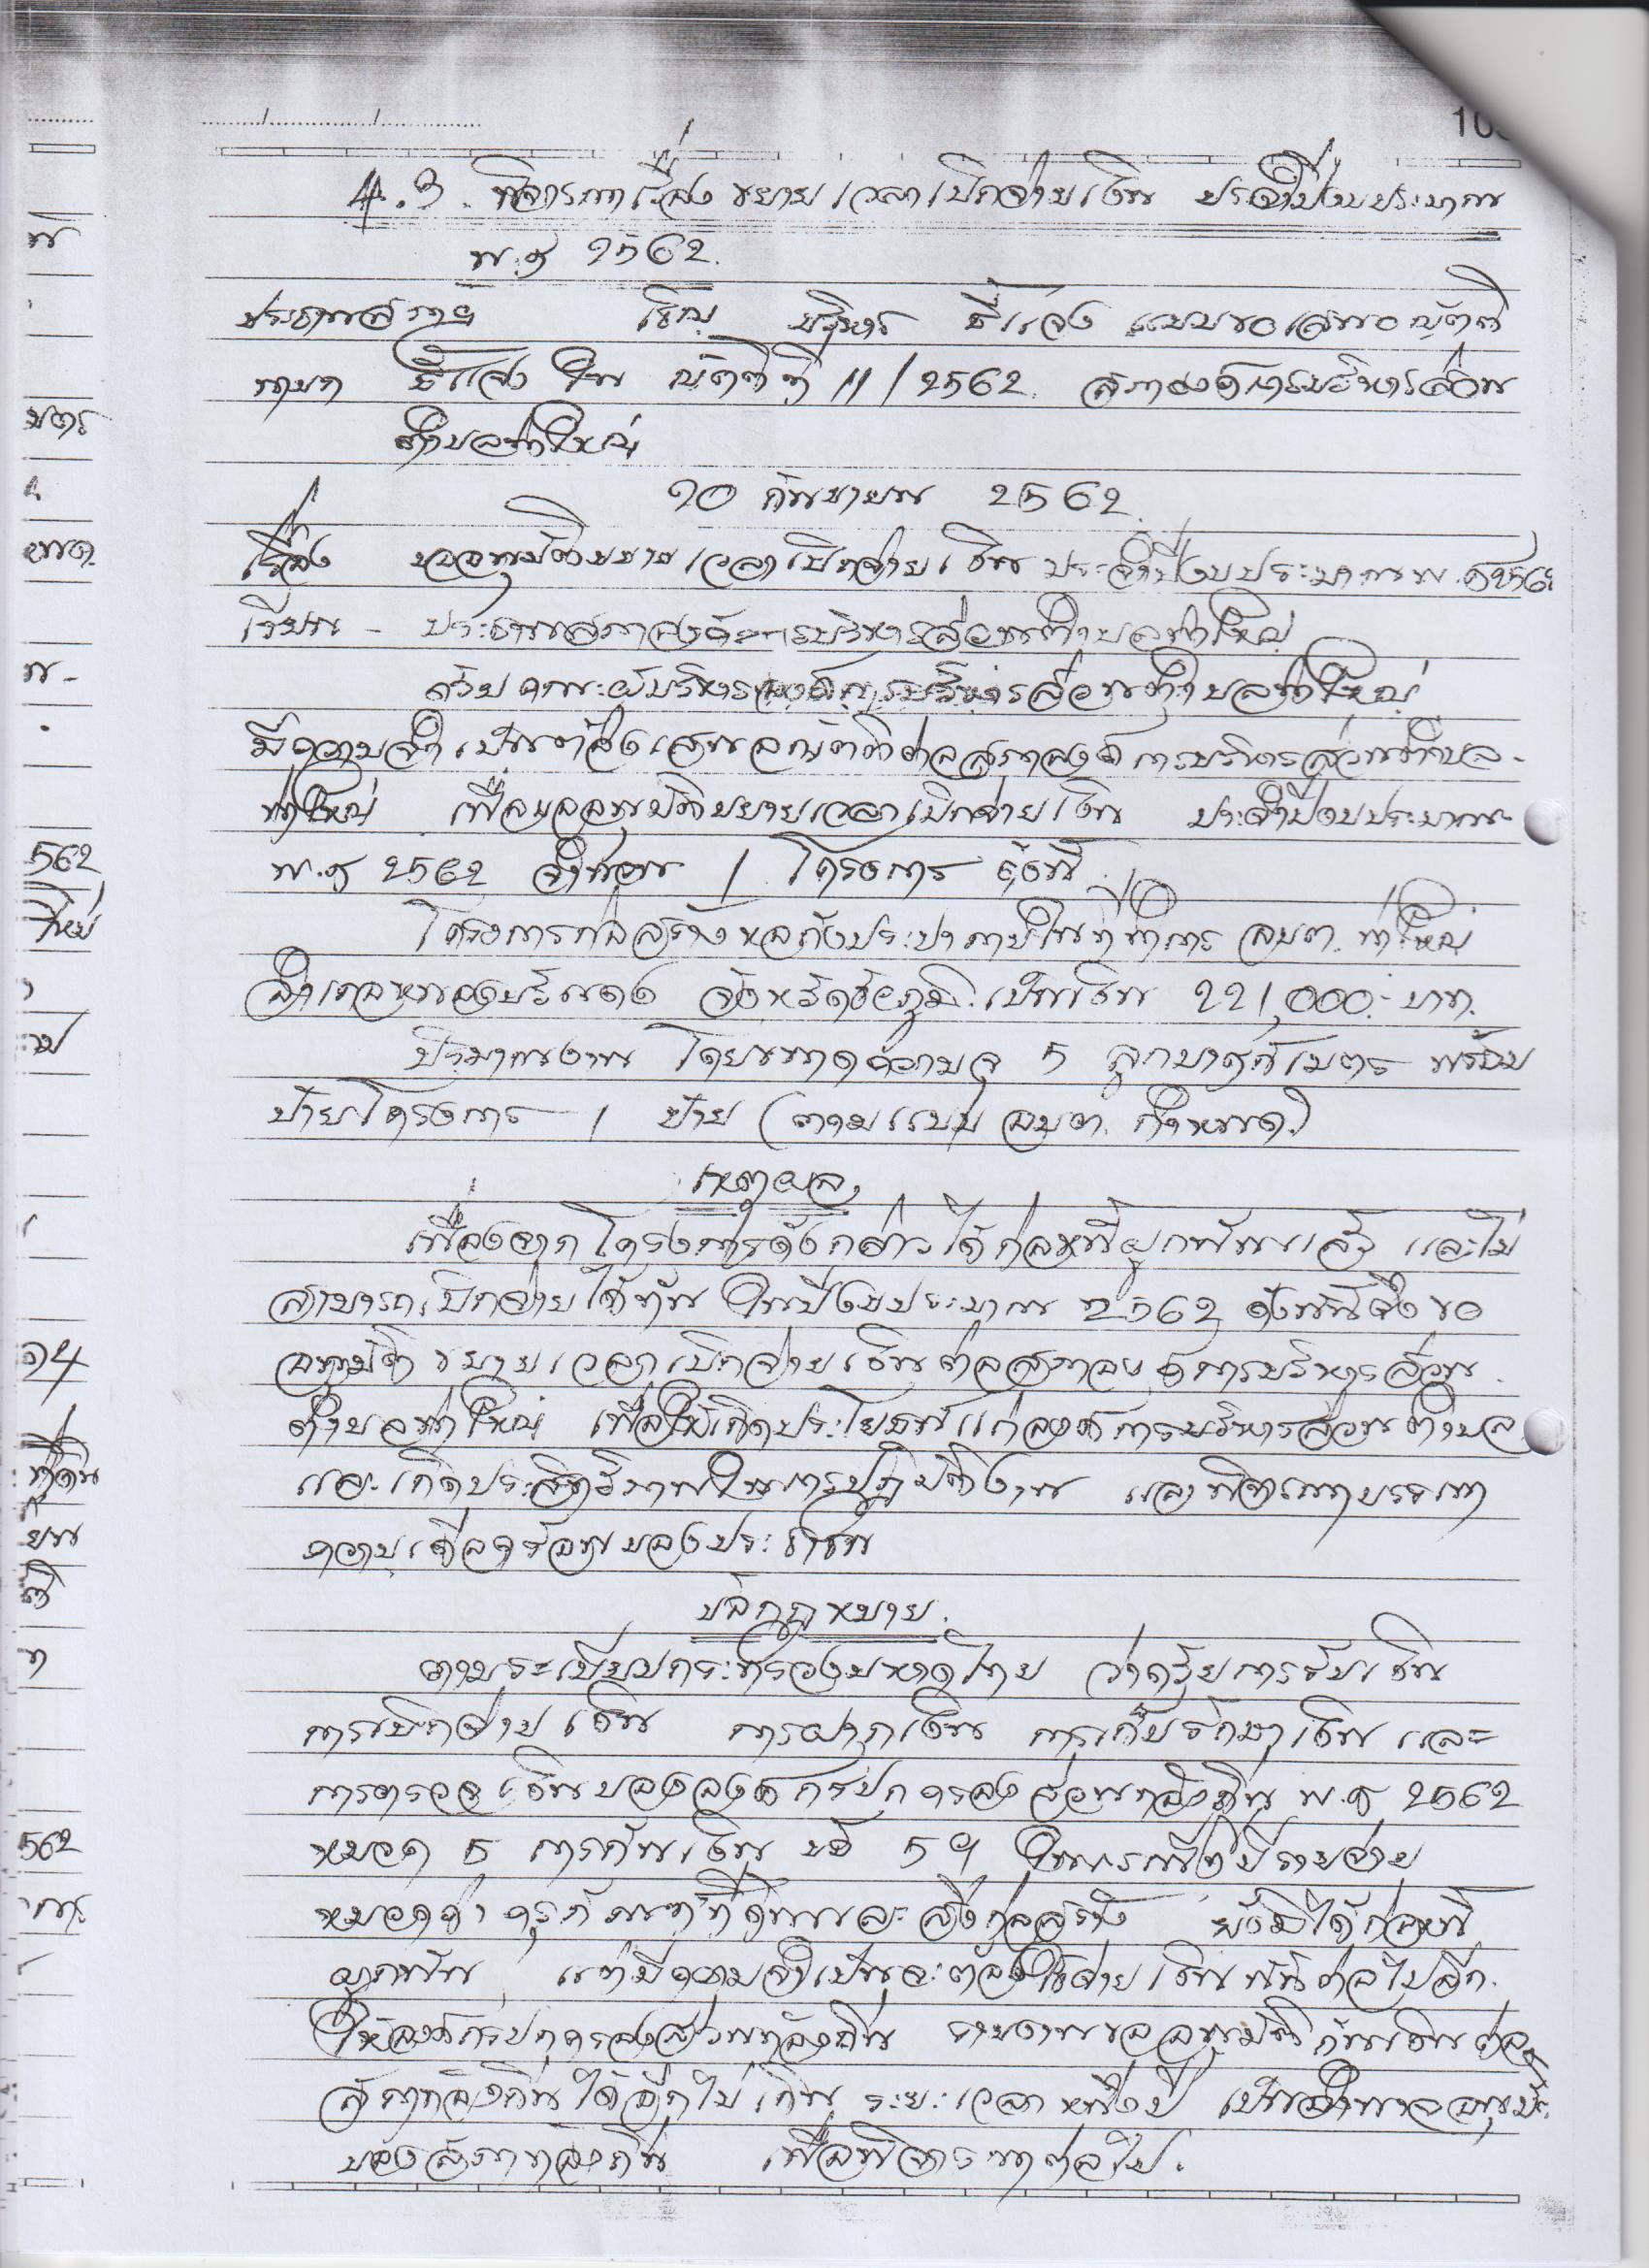 103
4.3. พิจารณาเรื่อง ขยายเวลาเบิกจ่ายเงิน ประจำปีงบประมาณ
พ.ศ 2562.
ประธานสภาฯ เชิญ บริหาร ชี้แจง แบบขอเสนอญัตติ
นายก ชี้แจง ใน ญัตติที่ 11/2562. สภาองค์การบริหารส่วน
ตำบลท่าใหญ่
10 กันยายน 2562.
เรื่อง ขออนุมัติขยายเวลาเบิกจ่ายเงิน ประจำปีงบประมาณ พ.ศ 2562
เรียน - ประธานสภาองค์การบริหารส่วนตำบลท่าใหญ่
ด้วย คณะผู้บริหารองค์การบริหารส่วนตำบลท่าใหญ่
มีความจำเป็นต้องเสนอญัตติต่อสภาองค์การบริหารส่วนตำบล-
ท่าใหญ่ เพื่อขออนุมัติขยายเวลาเบิกจ่ายเงิน ประจำปีงบประมาณ
พ.ศ 2562 จำนวน 1 โครงการ ดังนี้
โครงการก่อสร้างหอถังประปาภายในที่ทำการ อบต. ท่าใหญ่
อำเภอหนองบัวแดง จังหวัดชัยภูมิ เป็นเงิน 221,000.- บาท.
ปริมาณงาน โดยขนาดความจุ 5 ลูกบาศก์เมตร พร้อม
ป้ายโครงการ 1 ป้าย (ตามแบบ อบต. กำหนด)
เหตุผล
เนื่องจาก โครงการดังกล่าว ได้ก่อหนี้ผูกพันแล้ว และไม่
สามารถเบิกจ่ายได้ทัน ในปีงบประมาณ 2562 ดังนั้นจึงขอ
อนุมัติ ขยายเวลาเบิกจ่ายเงินต่อสภาองค์การบริหารส่วน
ตำบลท่าใหญ่ เพื่อให้เกิดประโยชน์แก่องค์การบริหารส่วนตำบล
และเกิดประสิทธิภาพในการปฏิบัติงาน และพิจารณาบรรเทา
ความเดือดร้อนของประชาชน
ข้อกฎหมาย.
ตามระเบียบกระทรวงมหาดไทย ว่าด้วยการรับเงิน
การเบิกจ่ายเงิน การฝากเงิน การเก็บรักษาเงิน และ
การตรวจเงินขององค์กรปกครองส่วนท้องถิ่น พ.ศ 2562
หมวด 5 การกันเงิน ข้อ 59 ในกรณีที่มีรายจ่าย
หมวดค่าครุภัณฑ์ที่ดินและสิ่งก่อสร้าง ยังมิได้ก่อหนี้
ผูกพัน แต่มีความจำเป็นจะต้องใช้จ่ายเงินนั้นต่อไปอีก
ให้องค์กรปกครองส่วนท้องถิ่น รายงานขออนุมัติกันเงินต่อ
สภาท้องถิ่นได้อีกไม่เกิน ระยะเวลาหนึ่งปี เป็นอำนาจอนุมัติ
ของสภาท้องถิ่น เพื่อพิจารณาต่อไป.